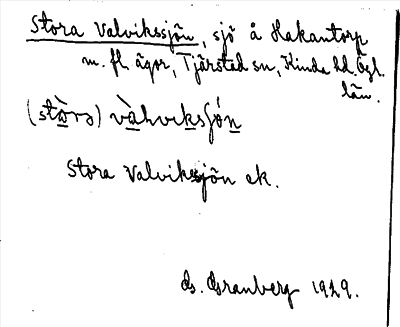 Stora Valvikssjön, sjö å Hakantorp
m. fl. ägor, Tjärstad sn, Kinda hd. Ögl.
län.
(stòrə) vàlviksjǿn
Stora Valviksjön ek.
G. Granberg 1929.